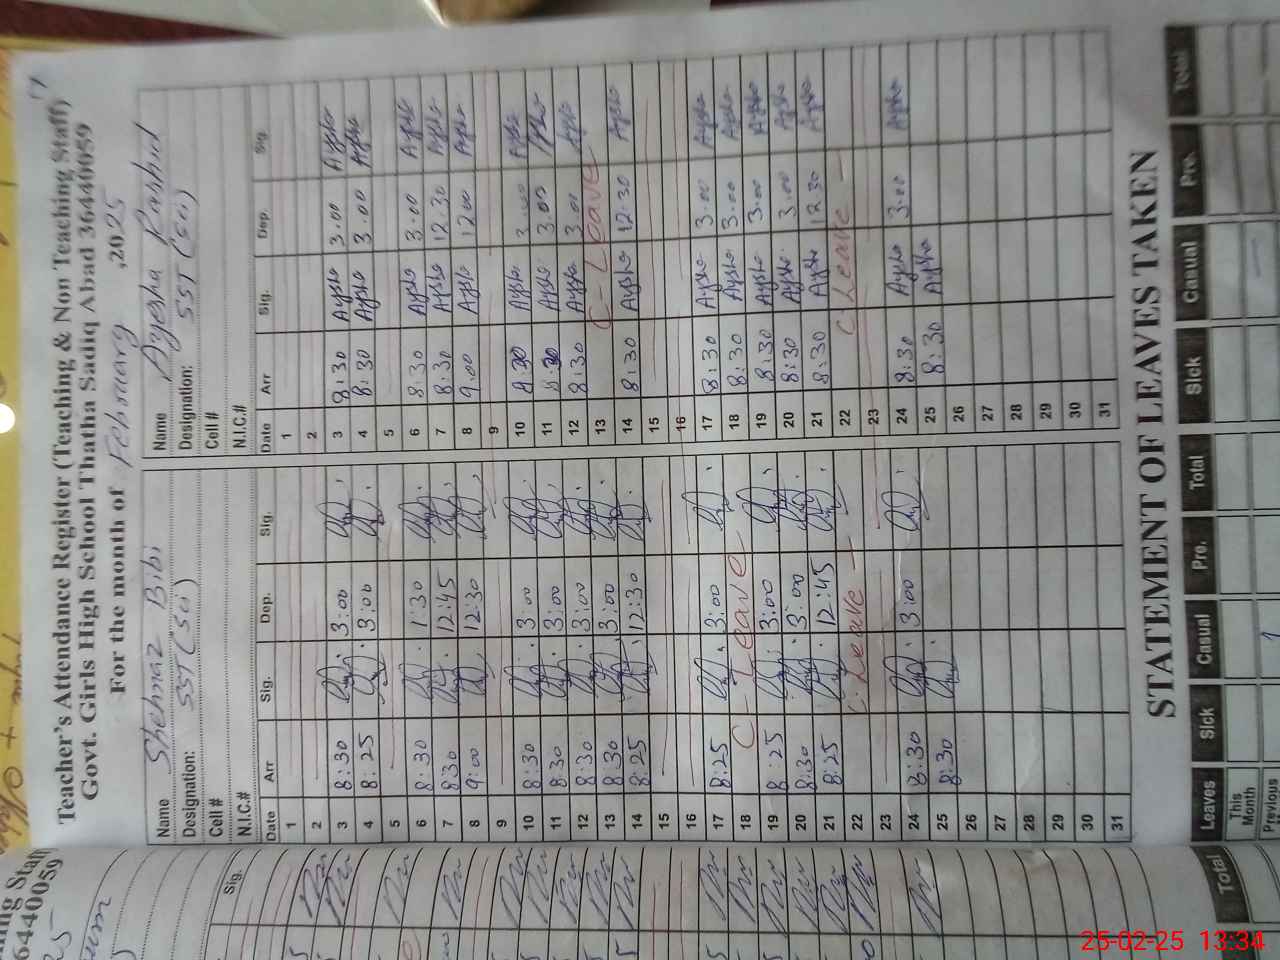 Teacher's Attendance Register (Teaching & Non Teaching Staff)
Govt. Girls High School Thatha Sadiq Abad 36440059
For the month of Febuary ,2025
Name Shehnaz Bibi
Designation: SST (Sci)
Cell #
N.I.C.#
Date Arr Sig. Dep. Sig.
1
2
3 8:30 3:00
4 8:25 3:00
5
6 8:30 1:30
7 8:30 12:45
8 9:00 12:30
9
10 8:30 3:00
11 8:30 3:00
12 8:30 3:00
13 8:30 3:00
14 8:25 12:30
15
16
17 8:25 3:00
18 C - Leave
19 8:25 3:00
20 8:30 3:00
21 8:25 12:45
22 C. Leave -
23
24 8:30 3:00
25 8:30
26
27
28
29
30
31
Name Ayesha Rashid
Designation: SST (Sci)
Cell #
N.I.C.#
Date Arr Sig. Dep. Sig.
1
2
3 8:30 Aysha 3.00 Aysha
4 8:30 Aysha 3.00 Aysha
5
6 8:30 Aysha 3.00 Aysha
7 8:30 Aysha 12.30 Aysha
8 9.00 Aysha 12.00 Aysha
9
10 8:30 Aysha 3.00 Aysha
11 8:30 Aysha 3.00 Aysha
12 8:30 Aysha 3.00 Aysha
13 C - Leave
14 8:30 Aysha 12.30 Aysha
15
16
17 8:30 Aysha 3.00 Aysha
18 8:30 Aysha 3.00 Aysha
19 8:30 Aysha 3.00 Aysha
20 8:30 Aysha 3.00 Aysha
21 8:30 Aysha 12.30 Aysha
22 C Leave -
23
24 8:30 Aysha 3.00 Aysha
25 8:30 Aysha
26
27
28
29
30
31
STATEMENT OF LEAVES TAKEN
Leaves Sick Casual Pro. Total Sick Casual Pro. Total
This
Month
Previous 1
Staff)
6440059
Sig.
Total
25-02-25 13:34